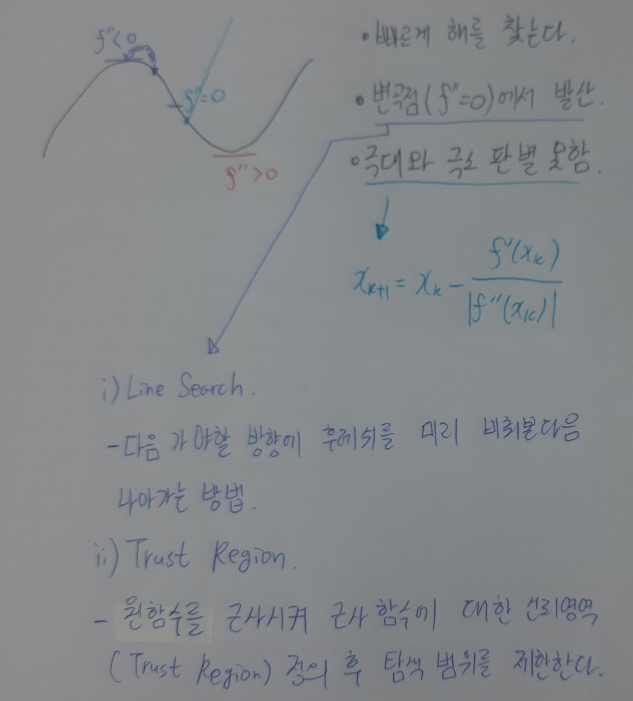 f''<0
f''=0
f''>0
• 빠르게 해를 찾는다.
• 변곡점(f''=0)에서 발산.
• 극대와 극소 판별 못함.
x_{k+1} = x_k - f'(x_k) / |f''(x_k)|
i) Line Search.
- 다음 가야할 방향에 후레쉬를 미리 비춰본다음
나아가는 방법.
ii) Trust Region.
- 원함수를 근사시켜 근사 함수에 대한 신뢰영역
(Trust Region) 정의 후 탐색 범위를 제한한다.